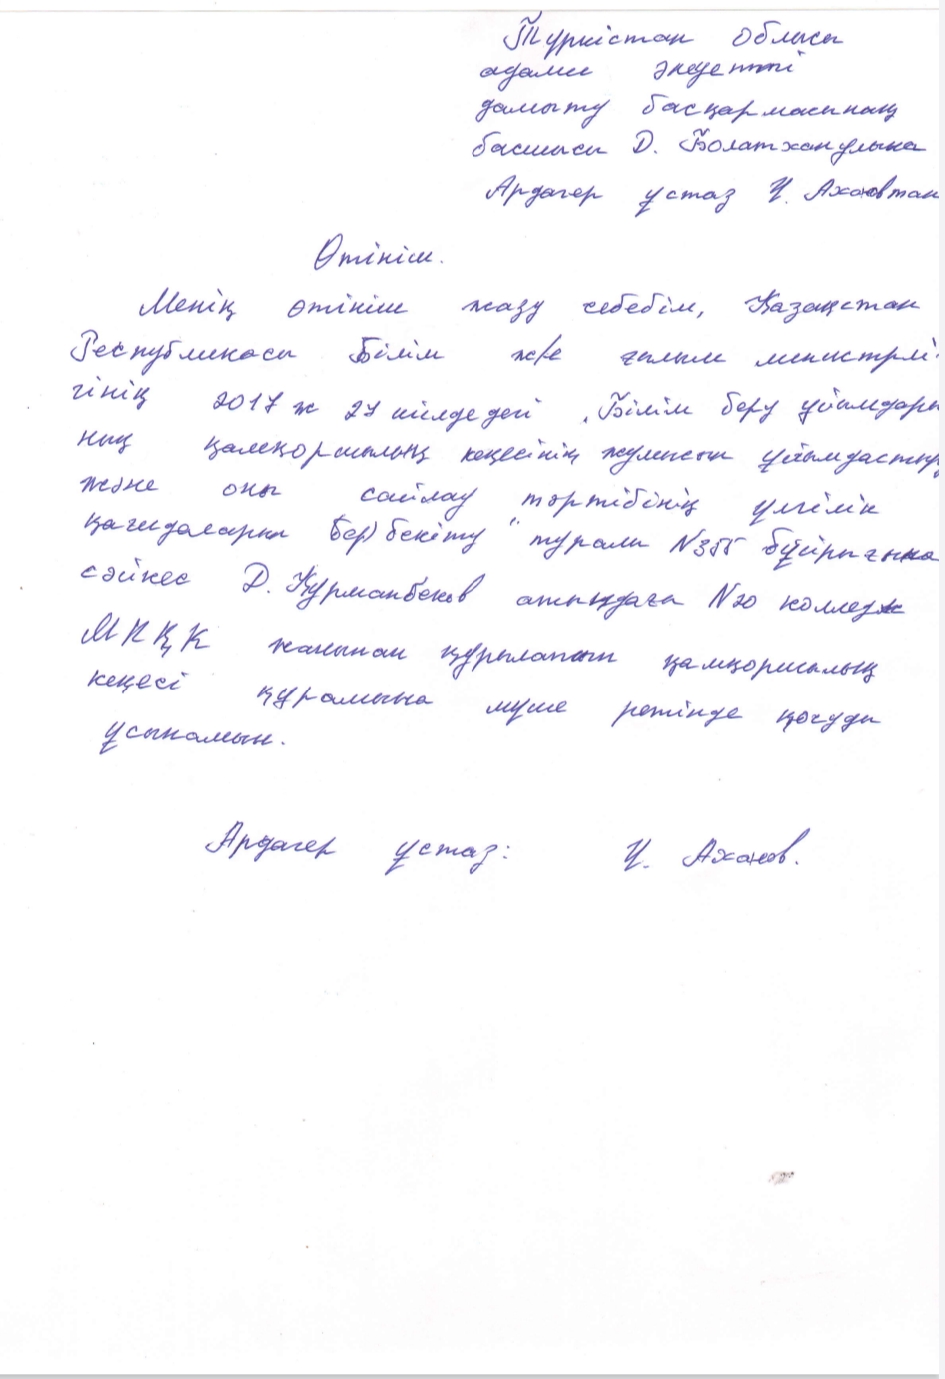 Түркістан облысы
адами әлеуетті
дамыту басқармасының
басшысы Д. Болатханұлына
Ардагер ұстаз Ү. Ахановтан
Өтініш.
Менің өтініш жазу себебім, Қазақстан
Республикасы Білім ж/е ғылым министрлі-
гінің 2017 ж 27 шілдедегі „Білім беру ұйымдары
ның қамқоршылық кеңесінің жұмысын ұйымдастыру
және оны сайлау тәртібінің үлгілік
қағидаларын бекіту" туралы N355 бұйрығына
сәйкес Д. Құрманбеков атындағы N20 колледж
МКҚК жанынан құрылатын қамқоршылық
кеңесі құрамына мүше ретінде қосуды
ұсынамын.
Ардагер ұстаз: Ү. Аханов.